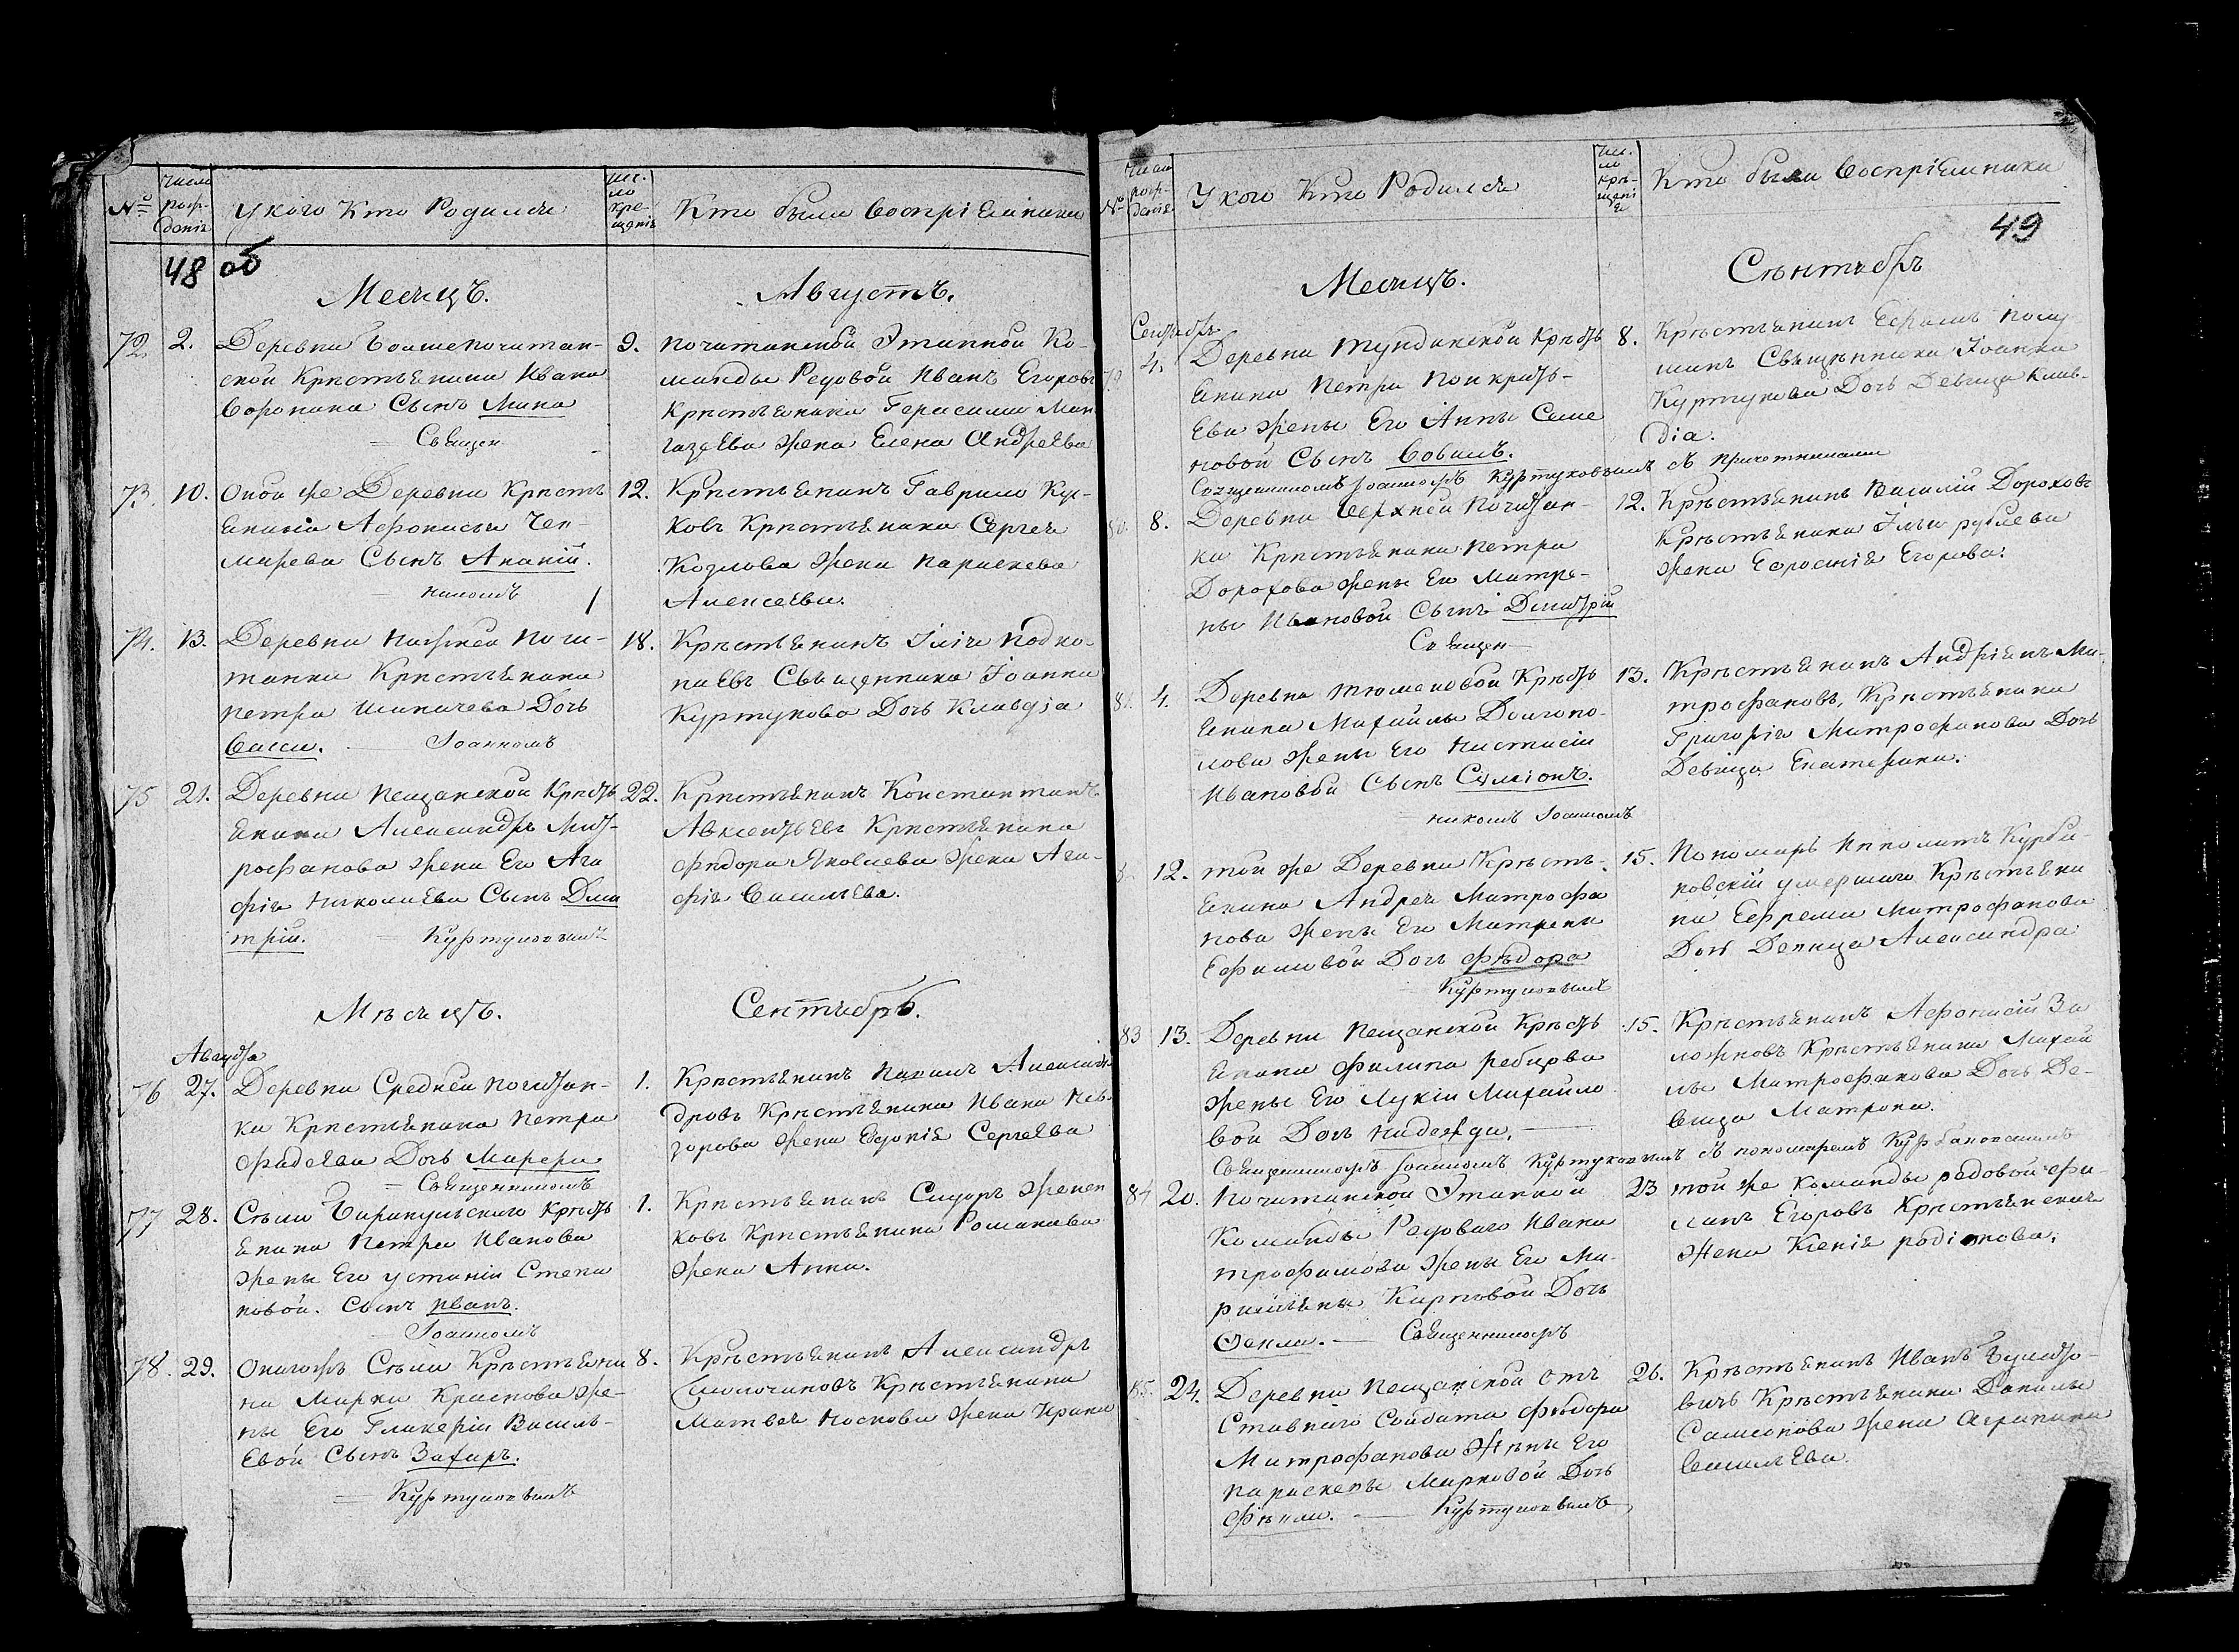 №
Число рож-
дения
У кого Кто Родился
Чис-
ло
кре-
щения
Кто были Воспріемники
48 об
Месяцъ.
Августъ.
72. 2.
Деревни Большепочитан-
ской Крестьянина Ивана
Сорокина Сынъ Мина
Священ
9.
Почитанской Этапной Ко-
манды Редовой Иванъ Егоровъ
Крестьянина Герасима Ман
газеева жена Елена Андреева
73. 10.
Оной же Деревни Кресть
янина Афонасья Чек-
марева Сынъ Ананій.
никомъ
12.
Крестьянинъ Гаврило Кус-
ковъ Крестьянина Сергея
Козлова жена Параскева
Алексеева.
74. 13.
Деревни Нижней Почи-
танки Крестьянина
Петра Шипачева Дочь
Васса. Іоанномъ
18.
Крестьянинъ Ілія Подко-
паевъ Священника Іоанна
Куртукова Дочь Клавдіа
75 21.
Деревни Пещанской Кресть
янина Александра Мит-
рофанова жена Его Ага
фія Николаева Сынъ Дми
трій. Куртуковымъ
22.
Крестьянинъ Константинъ
Авксентьевъ Крестьянина
Федора Яковлева жена Ага-
фія Васильева.
Месяцъ.
Сентябрь.
Августа
76 27.
Деревни Средней Почитан-
ки Крестьянина Петра
Фадеева Дочь Марѳра
Священникомъ
1.
Крестьянинъ Павелъ Алексан-
дровъ Крестьянина Ивана Нев-
зорова жена Евдокія Сергеева
77 28.
Села Барандатскаго Кресть
янина Петра Иванова
жены Его Устиніи Степа
новой. Сынъ Иванъ.
Іоанномъ
1.
Крестьянинъ Сидоръ
ковъ Крестьянина Романова
жена Анна.
78. 29.
Онагожъ Села Крестьяни
на Марка Краснова же-
ны Его Гликеріи Василь-
евой Сынъ Захаръ.
Куртуковымъ
8.
Крестьянинъ Александръ
Крестьянина
Матвея Носкова жена Ирина
№
Число
рож-
дения
У кого Кто Родился
Чис-
ло
кре-
щені
я
Кто были Воспріемники
49
Месяцъ.
Сентябрь
Сентября
79 4.
Деревни Тундинской Кресть
янина Петра Панкрать-
ева жены Его Анны Семе
новой Сынъ Созонъ.
Священникомъ Іоанномъ Куртуковымъ съ причетниками
8.
Крестьянинъ Ефимъ Полу
шинъ Священника Іоанна
Куртукова Дочь Девица Клав-
діа.
80. 8.
Деревни Верхней Почитан-
ки Крестьянина Петра
Дорохова жены Его Матре-
ны Ивановой Сынъ Димитрій
Священ
12.
Крестьянинъ Василій Дороховъ
Крестьянина Ільи Рублева
жена Ефросиніа Егорова.
81. 4.
Деревни Тюменевой Кресть
янина Михайлы Долгопо-
лова жены Его Настасіи
Ивановой Сынъ Сѵмеонъ.
никомъ Іоанномъ
13.
Крестьянинъ Андріянъ Ми-
трофановъ, Крестьянина
Григорія Митрофанова Дочь
Девица Екатерина.
12.
той же Деревни Кресть-
янина Андрея Митрофа
нова жены Его Матрены
Ефимовой Дочь Федора
Куртуковымъ
15.
Пономарь Ипполитъ Курба-
новскій умершаго Крестьяни
на Ефрема Митрофанова
Дочь Девица Александра
83 13.
Деревни Пещанской Кресть
янина Филипа Ребцова
жены Его Лукіи Михайло
вой Дочь Надежда.
Священникомъ Іоанномъ Куртуковымъ съ пономаремъ Курбановскимъ
15.
Крестьянинъ Афонасій За
ложновъ Крестьянина Михай
лы Митрофанова Дочь Де-
вица Матрона.
84 20.
Почитанской Этапной
Команды Редоваго Ивана
Трофимова жены Его Ма-
ремьяны Карповой Дочь
Ѳекла. Священникомъ
23
той же Команды редовой Фи-
липъ Егоровъ Крестьянская
жена Ксенія Родіонова.
85. 24.
Деревни Пещанской От
ставнаго Солдата Федора
Митрофанова жены Его
Параскевы Марковой Дочь
Фекла. Куртуковымъ
26.
Крестьянинъ Иванъ Булато-
вичъ Крестьянина Данилы
Самсонова жена Агрипина
Васильева.